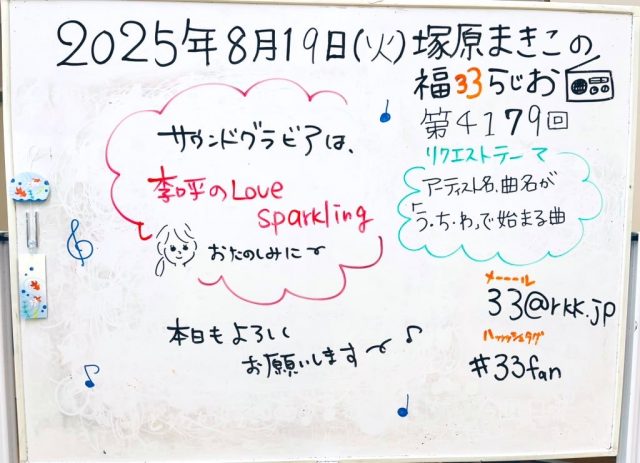 2025年8月19日(火)塚原まきこの
福33らじお
第4179回
サウンドグラビアは、
李口呼のLove
Sparkling
おたのしみに〜
リクエストテーマ
アーティスト名、曲名が
「う・ち・わ」で始まる曲
メーール
33@rkk.jp
ハッッシュタグ
#33fan
本日もよろしく
お願いします〜♪